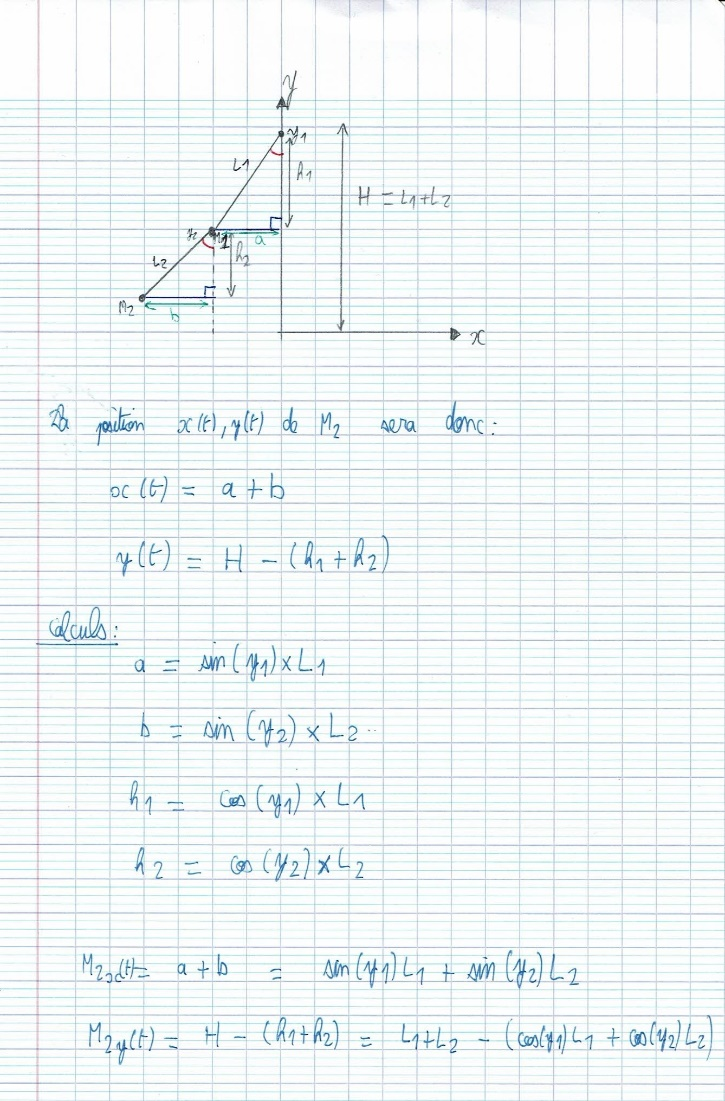 y
y1
L1
h1
H = L1+L2
y2
M1
a
L2
h2
M2
b
x
La position x(t), y(t) de M2 sera donc:
x(t) = a + b
y(t) = H - (h1 + h2)
Calculs:
a = sin(y1) x L1
b = sin(y2) x L2
h1 = cos(y1) x L1
h2 = cos(y2) x L2
M2x(t) = a + b = sin(y1) L1 + sin(y2) L2
M2y(t) = H - (h1+h2) = L1+L2 - (cos(y1) L1 + cos(y2) L2)